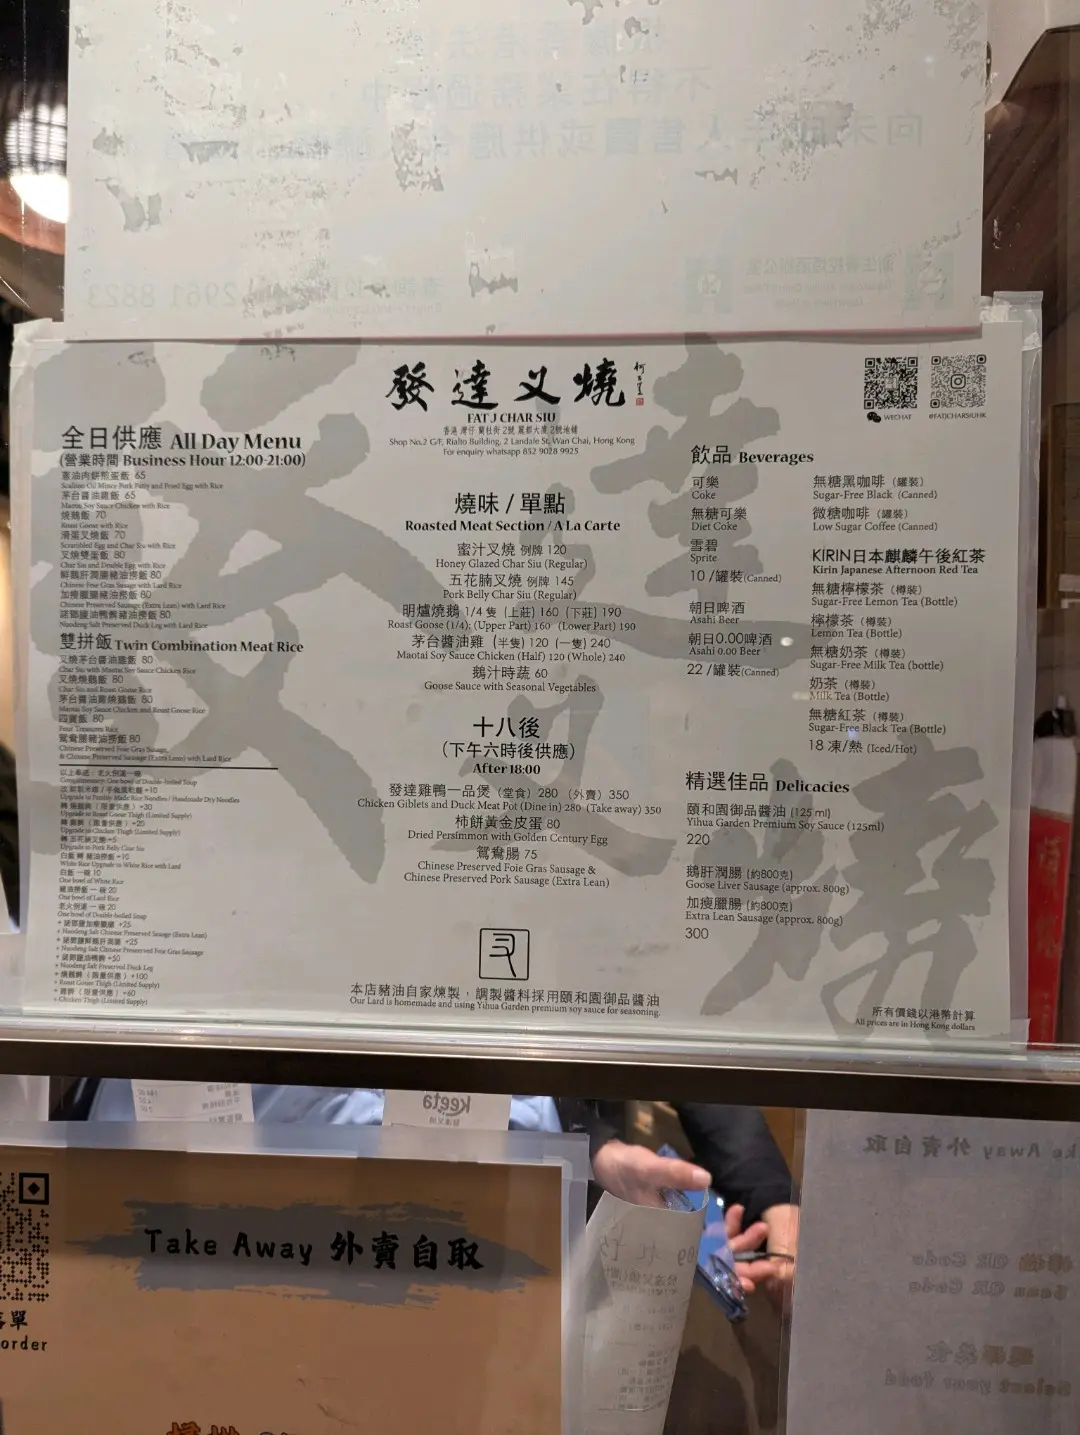 發達叉燒
FAT J CHAR SIU
香港 灣仔 蘭杜街 2號 麗都大廈 2號地鋪
Shop No.2 G/F, Rialto Building, 2 Landale St, Wan Chai, Hong Kong
For enquiry whatsapp 852 9028 9925
WECHAT
@FATJCHARSIUHK
全日供應 All Day Menu
(營業時間 Business Hour 12:00-21:00)
蔥油肉餅煎蛋飯 65
Scallion Oil Mince Pork Patty and Fried Egg with Rice
茅台醬油雞飯 65
Maotai Soy Sauce Chicken with Rice
燒鵝飯 70
Roast Goose with Rice
滑蛋叉燒飯 70
Scrambled Egg and Char Siu with Rice
叉燒雙蛋飯 80
Char Siu and Double Egg with Rice
鮮鵝肝潤腸豬油撈飯 80
Chinese Foie Gras Susage with Lard Rice
加瘦臘腸豬油撈飯 80
Chinese Preserved Susage (Extra Lean) with Lard Rice
諾鄧鹽油鴨髀豬油撈飯 80
Nuodeng Salt Preserved Duck Leg with Lard Rice
雙拼飯 Twin Combination Meat Rice
叉燒茅台醬油雞飯 80
Char Siu with Maotai Soy Sauce Chicken Rice
叉燒燒鵝飯 80
Char Siu and Roast Goose Rice
茅台醬油雞燒鵝飯 80
Maotai Soy Sauce Chicken and Roast Goose Rice
四寶飯 80
Four Treasures Rice
鴛鴦腸豬油撈飯 80
Chinese Preserved Foie Gras Susage,
& Chinese Preserved Susage (Extra Lean) with Lard Rice
以上奉送 : 老火例湯一碗
Complimentary: One bowl of Double-boiled Soup
Upgrade to Freshly Made Rice Noodles / Handmade Dry Noodles
轉 燒鵝髀 ( 限量供應 ) +30
Upgrade to Roast Goose Thigh (Limited Supply)
轉 雞髀 ( 限量供應 ) +20
Upgrade to Chicken Thigh (Limited Supply)
轉 五花腩叉燒 +5
Upgrade to Pork Belly Char Siu
白飯 轉 豬油撈飯 +10
White Rice Upgrade to White Rice with Lard
白飯 一碗 10
One bowl of White Rice
豬油撈飯 一碗 20
One bowl of Lard Rice
老火例湯 一碗 20
One bowl of Double-boiled Soup
+ 諾鄧鹽加瘦臘腸 +25
+ Nuodeng Salt Chinese Preserved Sausage (Extra Lean)
+ 諾鄧鹽鮮鵝肝潤腸 +25
+ Nuodeng Salt Chinese Preserved Foie Gras Sausage
+ 諾鄧鹽油鴨髀 +50
+ Nuodeng Salt Preserved Duck Leg
+ 燒鵝髀 ( 限量供應 ) +100
+ Roast Goose Thigh (Limited Supply)
+ 雞髀 ( 限量供應 ) +60
+ Chicken Thigh (Limited Supply)
燒味 / 單點
Roasted Meat Section / A La Carte
蜜汁叉燒 例牌 120
Honey Glazed Char Siu (Regular)
五花腩叉燒 例牌 145
Pork Belly Char Siu (Regular)
明爐燒鵝 1/4 隻 (上莊) 160 (下莊) 190
Roast Goose (1/4): (Upper Part) 160 (Lower Part) 190
茅台醬油雞 (半隻) 120 (一隻) 240
Maotai Soy Sauce Chicken (Half) 120 (Whole) 240
鵝汁時蔬 60
Goose Sauce with Seasonal Vegetables
十八後
(下午六時後供應)
After 18:00
發達雞鴨一品煲 (堂食) 280 (外賣) 350
Chicken Giblets and Duck Meat Pot (Dine in) 280 (Take away) 350
柿餅黃金皮蛋 80
Dried Persimmon with Golden Century Egg
鴛鴦腸 75
Chinese Preserved Foie Gras Sausage &
Chinese Preserved Pork Sausage (Extra Lean)
本店豬油自家煉製，調製醬料採用頤和園御品醬油
Our Lard is homemade and using Yihua Garden premium soy sauce for seasoning.
飲品 Beverages
可樂
Coke
無糖可樂
Diet Coke
雪碧
Sprite
10 /罐裝(Canned)
朝日啤酒
Asahi Beer
朝日0.00啤酒
Asahi 0.00 Beer
22 /罐裝(Canned)
無糖黑咖啡 (罐裝)
Sugar-Free Black (Canned)
微糖咖啡 (罐裝)
Low Sugar Coffee (Canned)
KIRIN日本麒麟午後紅茶
Kirin Japanese Afternoon Red Tea
無糖檸檬茶 (樽裝)
Sugar-Free Lemon Tea (Bottle)
檸檬茶 (樽裝)
Lemon Tea (Bottle)
無糖奶茶 (樽裝)
Sugar-Free Milk Tea (bottle)
奶茶 (樽裝)
Milk Tea (Bottle)
無糖紅茶 (樽裝)
Sugar-Free Black Tea (Bottle)
18 凍/熱 (Iced/Hot)
精選佳品 Delicacies
頤和園御品醬油 (125 ml)
Yihua Garden Premium Soy Sauce (125ml)
220
鵝肝潤腸 (約800克)
Goose Liver Sausage (approx. 800g)
加瘦臘腸 (約800克)
Extra Lean Sausage (approx. 800g)
300
所有價錢以港幣計算
All prices are in Hong Kong dollars
Keeta
Take Away 外賣自取
單
order
Take Away 外賣自取
QR Code
Scan QR Code
Select your food